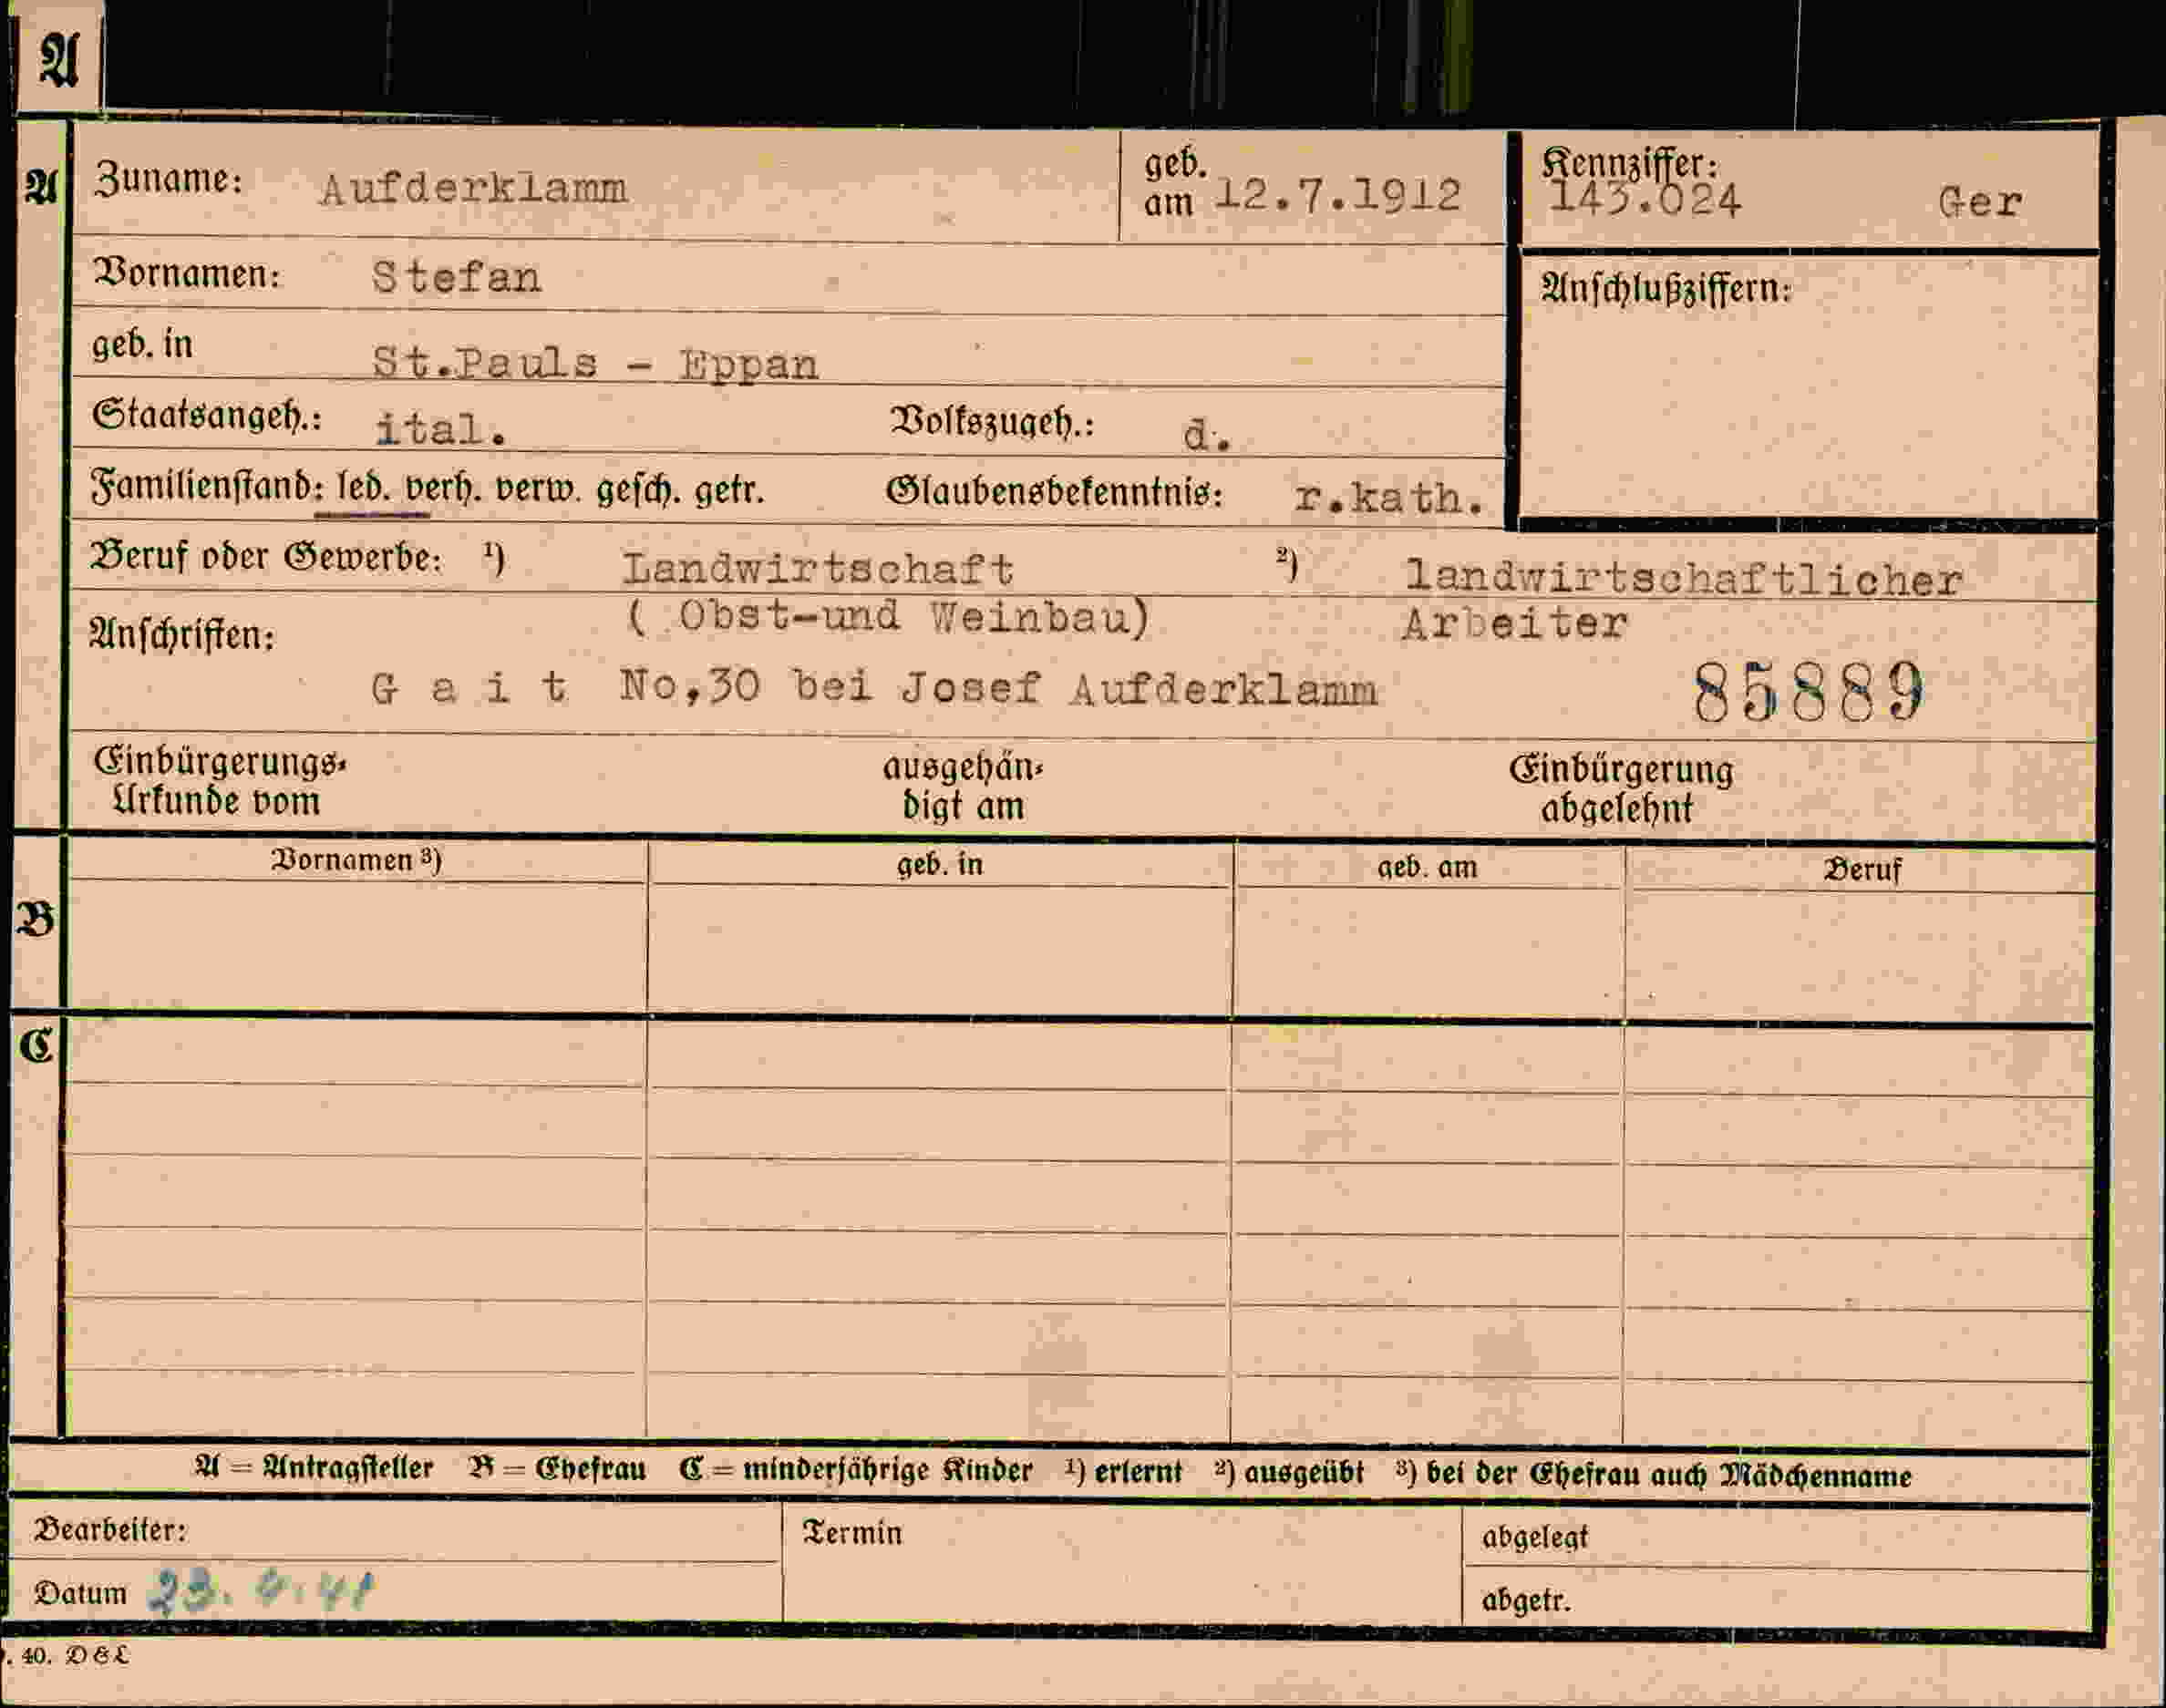 A
A Zuname: Aufderklamm geb. am 12.7.1912 Kennziffer: 143.024 Ger
Vornamen: Stefan Anschlußziffern:
geb. in St.Pauls - Eppan
Staatsangeh.: ital. Volkszugeh.: d.
Familienstand: led. verh. verw. gesch. getr. Glaubensbekenntnis: r.kath.
Beruf oder Gewerbe: ¹) Landwirtschaft ²) landwirtschaftlicher
( Obst-und Weinbau) Arbeiter
Anschriften:
G a i t No,30 bei Josef Aufderklamm 85889
Einbürgerungs- ausgehän- Einbürgerung
Urkunde vom digt am abgelehnt
Vornamen ³) geb. in geb. am Beruf
B
C
A = Antragsteller B = Ehefrau C = minderjährige Kinder ¹) erlernt ²) ausgeübt ³) bei der Ehefrau auch Mädchenname
Bearbeiter: Termin abgelegt
Datum abgetr.
. 40. D & L